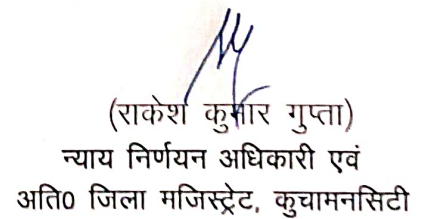 (राकेश कुमार गुप्ता)
न्याय निर्णयन अधिकारी एवं
अति0 जिला मजिस्ट्रेट, कुचामनसिटी